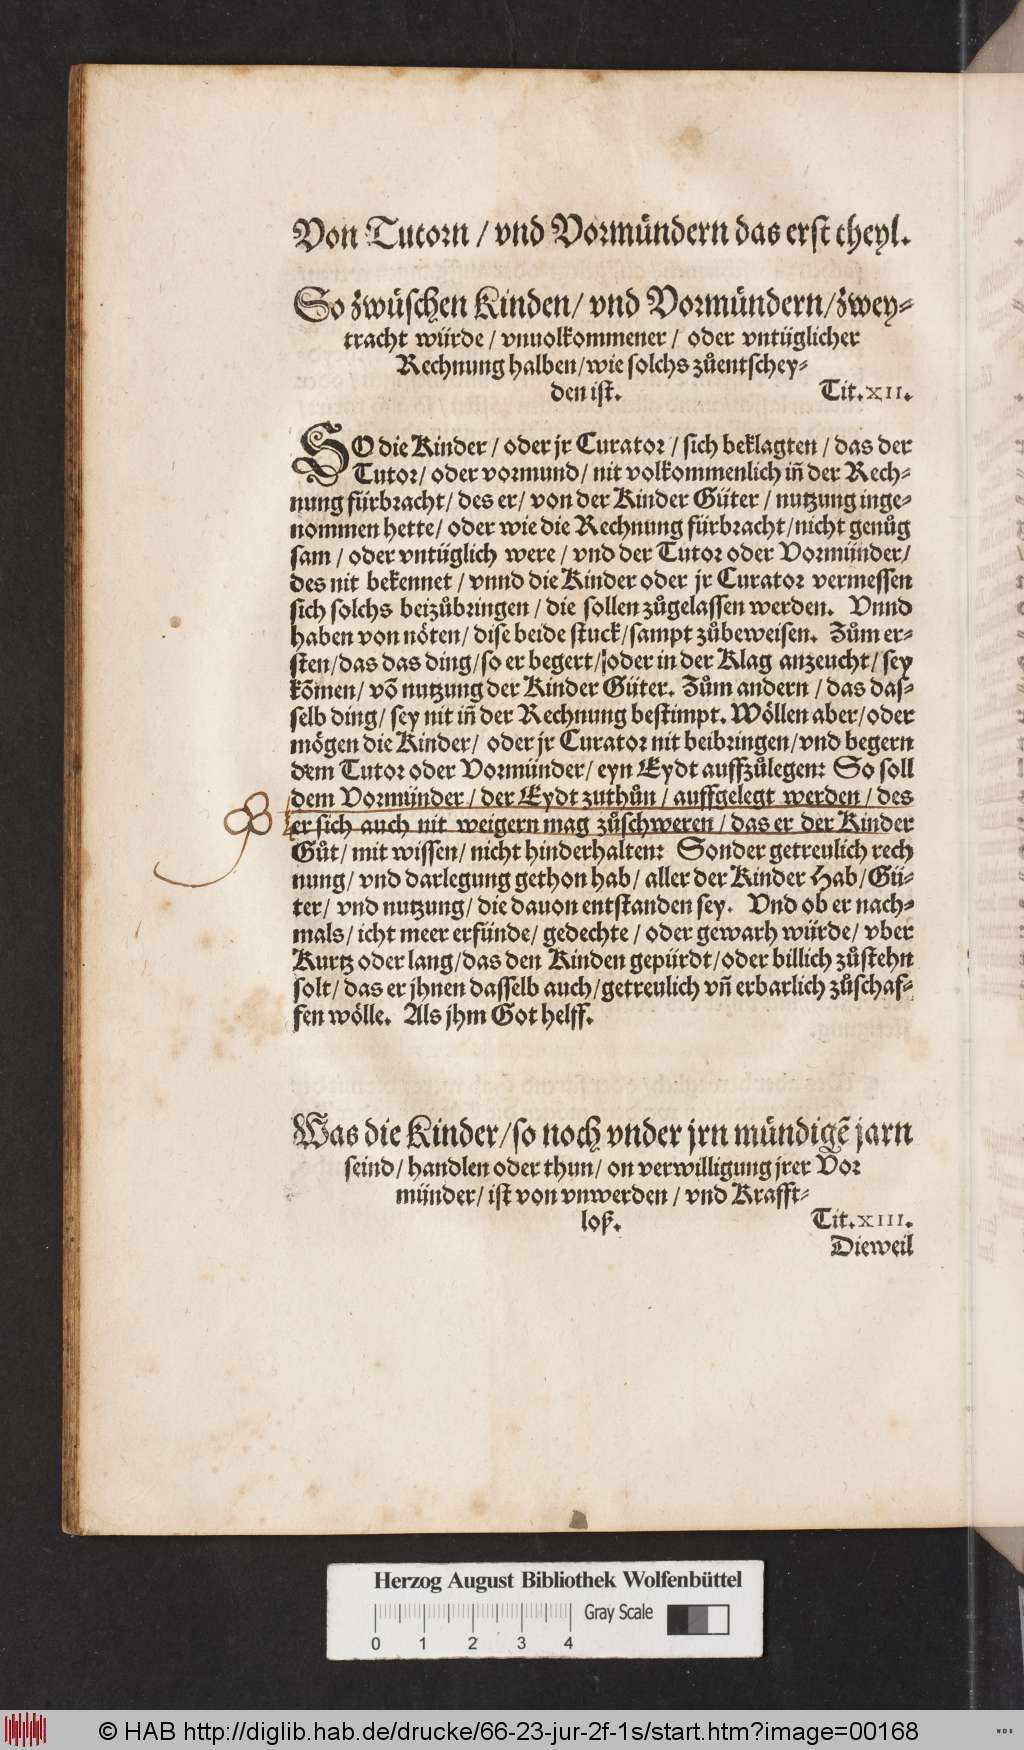 Von Tutorn / vnd Vormündern das erst theyl.
So zwüschen Kinden / vnd Vormündern / zwey⸗
tracht würde / vnuolkommener / oder vntüglicher
Rechnung halben / wie solchs zůentschey⸗
den ist. Tit. XII.
SO die Kinder / oder jr Curator / sich beklagten / das der
Tutor / oder vormund / nit volkommenlich iñ der Rech⸗
nung fürbracht / des er / von der Kinder Güter / nutzung inge⸗
nommen hette / oder wie die Rechnung fürbracht / nicht genůg
sam / oder vntüglich were / vnd der Tutor oder Vormünder /
des nit bekennet / vnnd die Kinder oder jr Curator vermessen
sich solchs beizůbringen / die sollen zůgelassen werden. Vnnd
haben von nöten / dise beide stuck / sampt zůbeweisen. Zům er⸗
sten / das das ding / so er begert / oder in der Klag anzeucht / sey
kõmen / võ nutzung der Kinder Güter. Zům andern / das das⸗
selb ding / sey nit iñ der Rechnung bestimpt. Wöllen aber / oder
mögen die Kinder / oder jr Curator nit beibringen / vnd begern
dem Tutor oder Vormünder / eyn Eydt auffzůlegen: So soll
dem Vormünder / der Eydt zuthůn / auffgelegt werden / des
er sich auch nit weigern mag zůschweren / das er der Kinder
Gůt / mit wissen / nicht hinderhalten: Sonder getreulich rech
nung / vnd darlegung gethon hab / aller der Kinder Hab / Gü⸗
ter / vnd nutzung / die dauon entstanden sey. Vnd ob er nach⸗
mals / icht meer erfünde / gedechte / oder gewarh würde / vber
Kurtz oder lang / das den Kinden gepürdt / oder billich zůstehn
solt / das er jhnen dasselb auch / getreulich vñ erbarlich zůschaf⸗
fen wölle. Als jhm Got helff.
Was die Kinder / so noch vnder jrn mündigẽ jarn
seind / handlen oder thun / on verwilligung jrer Vor
münder / ist von vnwerden / vnd Krafft⸗
loß. Tit. XIII.
Dieweil
Herzog August Bibliothek Wolfenbüttel
Gray Scale
0 1 2 3 4
© HAB http://diglib.hab.de/drucke/66-23-jur-2f-1s/start.htm?image=00168